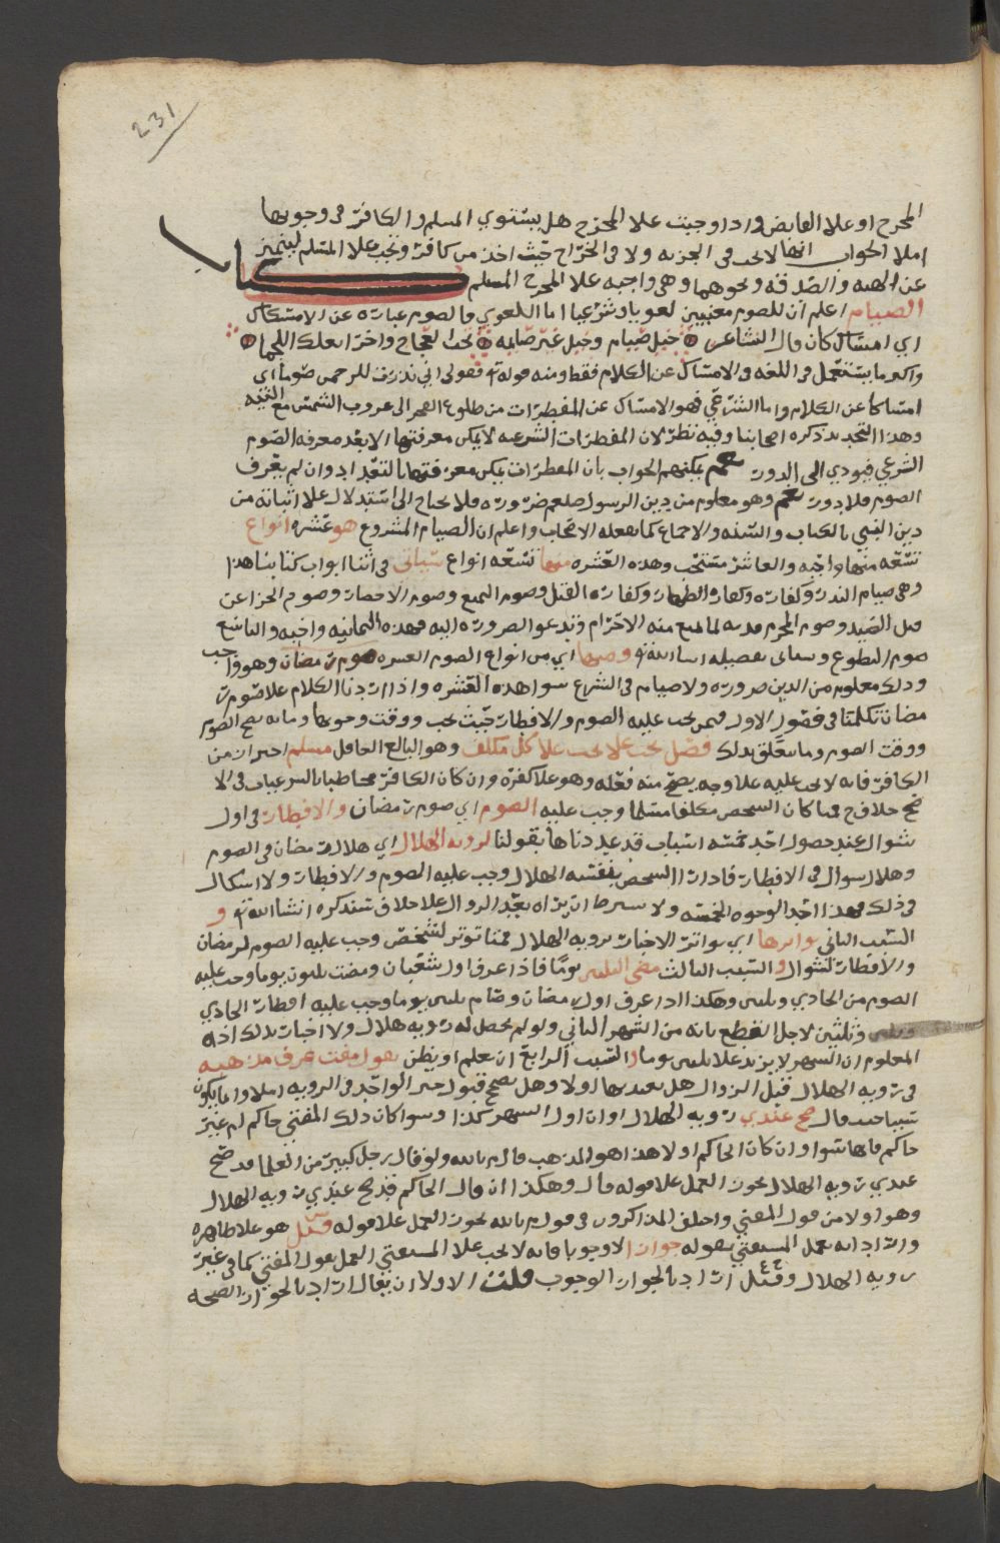 231
المخرج او علا القابض واذا وجبت علا المخرج هل يستوي المسلم والكافر في وجوبها
ام لا الجواب انها لا تجب في الجزيه ولا في الخراج حيث اخذ من كافر وتجب علا المسلم ليتميز
عن الهبه والصدقه ونحوهما وهي واجبه علا المخرج المسلم كتاب
الصيام اعلم ان للصوم معنيين لغويا وشرعيا اما اللغوي فالصوم عباره عن الامساك
اي امساك كان قال الشاعر خيل صيام وخيل غير صايمه تحت العجاج واخرا تعلك اللجما
واكثر ما يستعمل في اللغه في الامساك عن الكلام فقط ومنه قوله تع فقولي اني نذرت للرحمن صوما اي
امساكا عن الكلام واما الشرعي فهو الامساك عن المفطرات من طلوع الفجر الى غروب الشمس مع النيه
وهذا التحديد ذكره اصحابنا وفيه نظر لان المفطرات الشرعيه لا يمكن معرفتها الا بعد معرفه الصوم
الشرعي فيودي الى الدور نعم يمكنهم الجواب بان المفطرات يمكن معرفتها بالتعداد وان لم يعرف
الصوم فلا دور نعم وهو معلوم من دين الرسول صلعم ضروره فلا يحتاج الى استدلال علا اثباته من
دين النبي بالكتاب والسنه والاجماع كما يفعله الاصحاب واعلم ان الصيام المشروع هو عشره انواع
تسعه منها واجبه والعاشر مستحب وهذه العشره منها تسعه انواع ستاتي في اثنا ابواب كتابنا هذا
وهي صيام النذر وكفارته وكفاره الظهار وكفاره القتل وصوم التمتع وصوم الاحصار وصوم الجزا عن
قتل الصيد وصوم المحرم فديه لما يمنع منه الاحرام وتدعو الضروره اليه فهذه الثمانيه واجبه والتاسع
صوم التطوع وسياتي تفصيله انشا الله تع ومنها اي من انواع الصوم العشره صوم رمضان وهو واجب
وذلك معلوم من الدين ضروره ولا صيام في الشرع سوا هذه العشره واذا اردنا الكلام علا صوم ر
مضان تكلمنا في فصول الاول فيمن يجب عليه الصوم والافطار حيث يجب ووقت وجوبها وما به يصح الصوم
ووقت الصوم وما يتعلق بذلك فصل يجب علا كل مكلف وهو البالغ العاقل مسلم احتراز من
الكافر فانه لا يجب عليه علا وجه يصح منه فعله وهو علا كفره وان كان الكافر مخاطبا بالشرعيات في الا
صح خلاف ح فما كان الشخص مكلفا مسلما وجب عليه الصوم اي صوم رمضان والافطار في اول
شوال عند حصول احد خمسه اسباب قد عددناها بقولنا لرويه الهلال اي هلال رمضان في الصوم
وهلال شوال في الافطار فاذا را الشخص بنفسه الهلال وجب عليه الصوم والافطار ولا اشكال
في ذلك فهذا احد الوجوه الخمسه ولا يشترط ان يراه بعد الزوال علا خلاف سنذكره انشا الله تع و
السبب الثاني تواترها اي تواتر الاخبار برويه الهلال فمتا تواتر للشخص وجب عليه الصوم لرمضان
والافطار لشوال والسبب الثالث مضي الثلثين يوما فاذا عرف اول شعبان ومضت ثلثون يوما وجب عليه
الصوم من الحادي وثلثين وهكذا اذا عرف اول رمضان وصام ثلثين يوما وجب عليه افطار الحادي
وثلثين لاجل القطع بانه من الشهر الثاني ولو لم يحصل له رويه هلال ولا اخبار بذلك اذ
المعلوم ان الشهر لا يزيد علا ثلثين يوما والسبب الرابع ان يعلم او يظن بقول مفت عرف مذهبه
في رويه الهلال قبل الزوال هل يعتد بها او لا وهل يصح قبول خبر الواحد في الرويه ام لا وانما يكون
سببا حيث قال صح عندي رويه الهلال او ان اول الشهر كذا وسوا كان ذلك المفتي حاكم ام غير
حاكم فانهما سوا وان كان الحاكم اولا هذا هو المذهب قال م بالله ولو قال رجل كبير من العلما قد صح
عندي رويه الهلال يجوز العمل علا قوله قال وهكذا ان قال الحاكم قد صح عندي رويه الهلال
وهو اولا من قول المفتي واختلف المذاكرون في قول م بالله يجوز العمل علا قوله فقيل هو علا ظاهره
وارادانه يعمل المستفتي بقوله جوازا لا وجوبا فانه لا يجب علا المستفتي العمل بقول المفتي كما في غير
رويه الهلال وقيل اراد بالجواز الوجوب قلت الاولا ان يقال اراد بالجواز الصحه